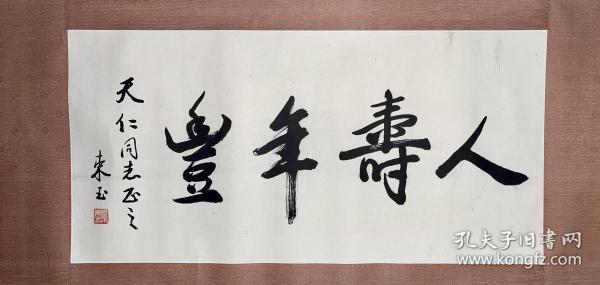 人壽年豐
天仁同志正之
東玉
孔夫子旧書网
www.kongfz.com